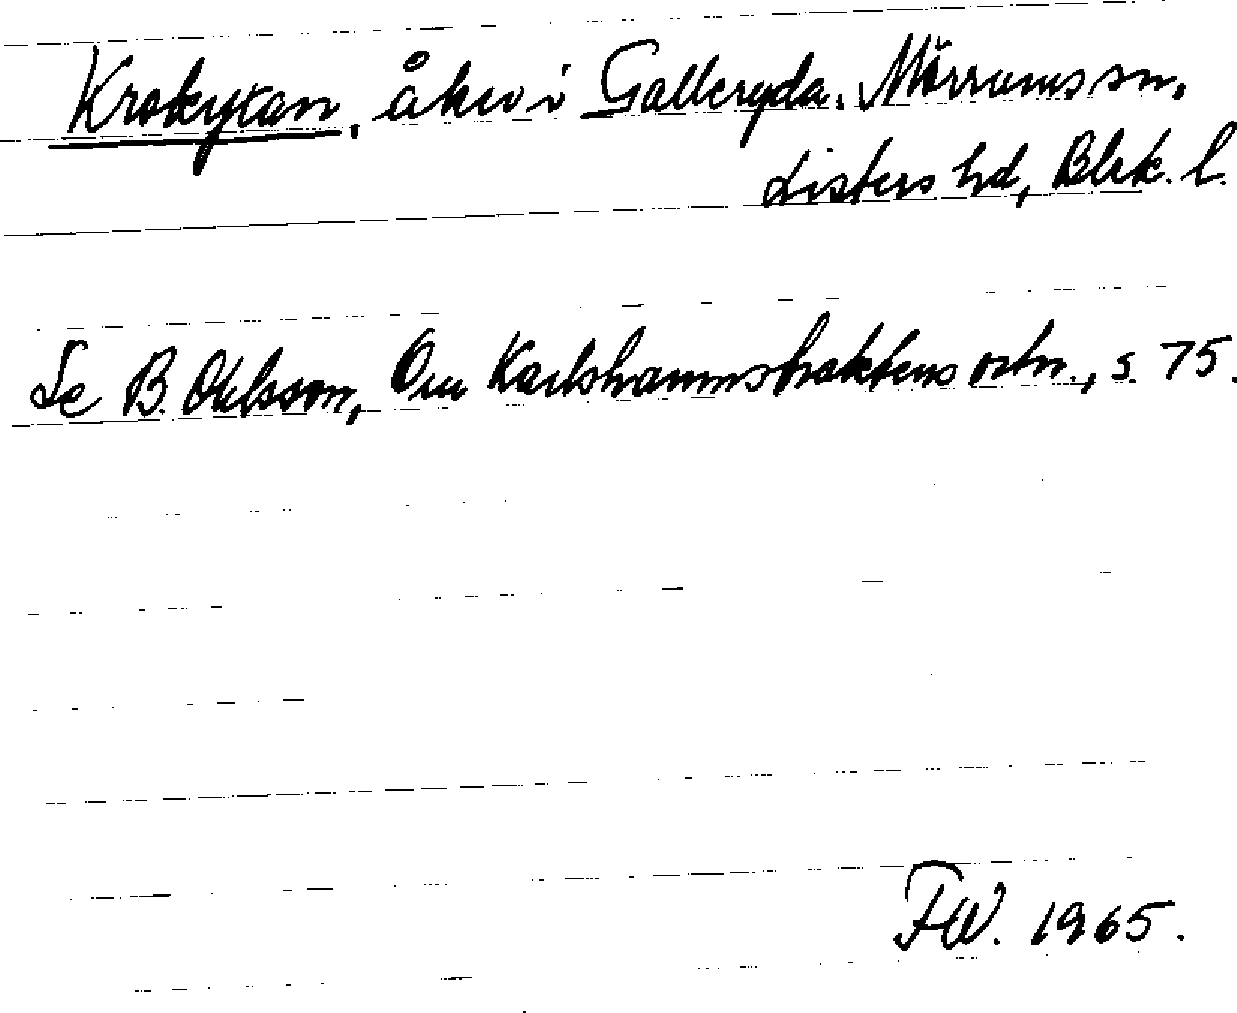 Krokytan, åker i Galleryda, Mörrums sn,
Listers hd, Blek. l.
Se B. Ohlsson, Om Karlshamnstraktens ortn., s. 75.
FW. 1965.